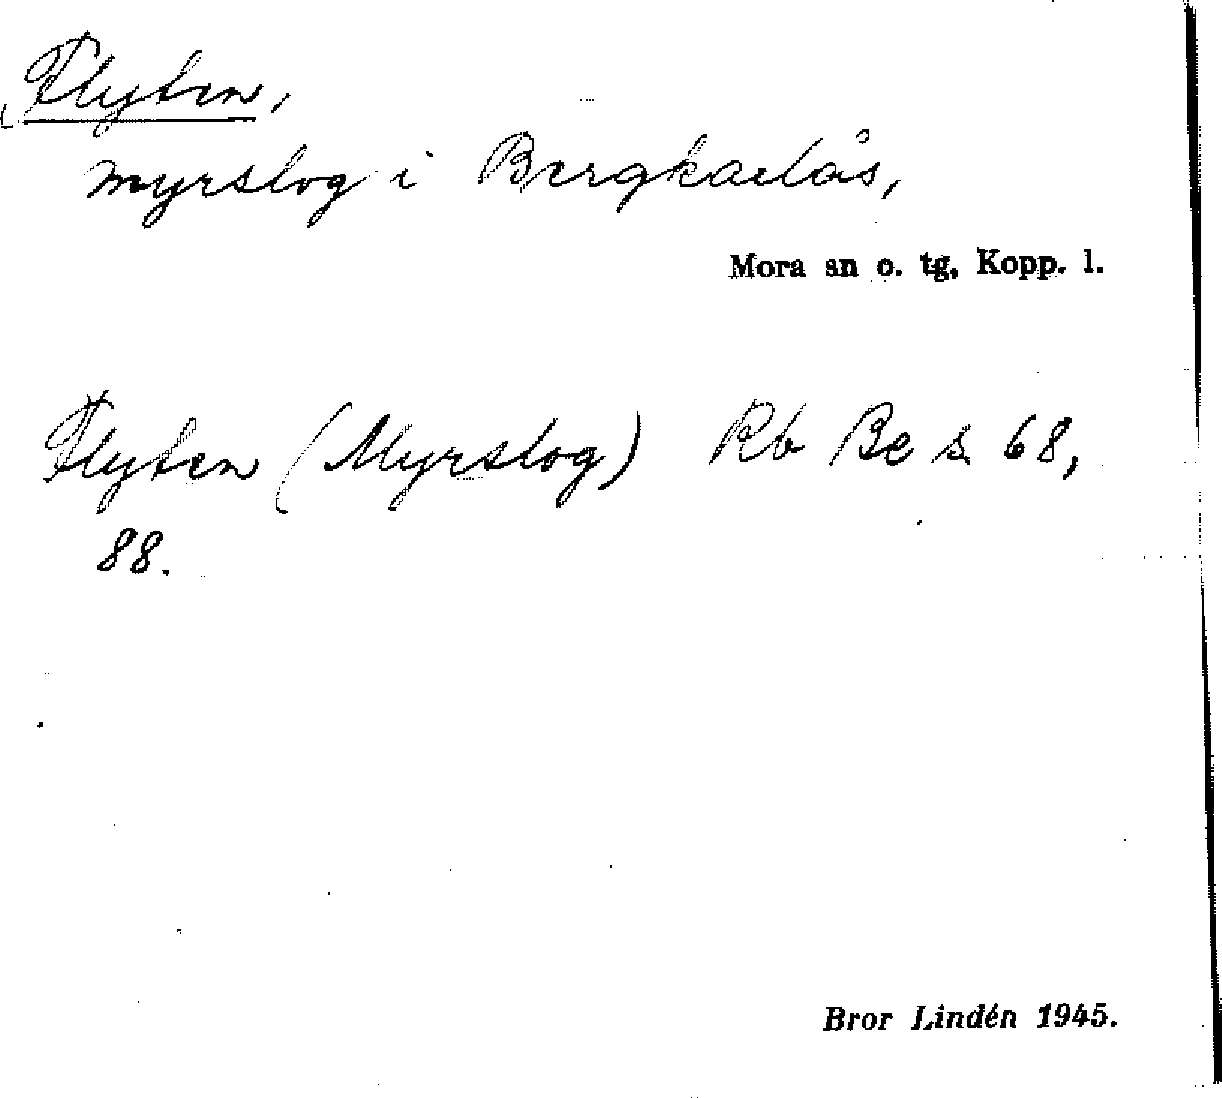 Flyten,
myrslog i Bergkarlås,
Mora sn o. tg, Kopp. l.
Flyten (Myrslog) Rb Be s. 68,
88.
Bror Lindén 1945.